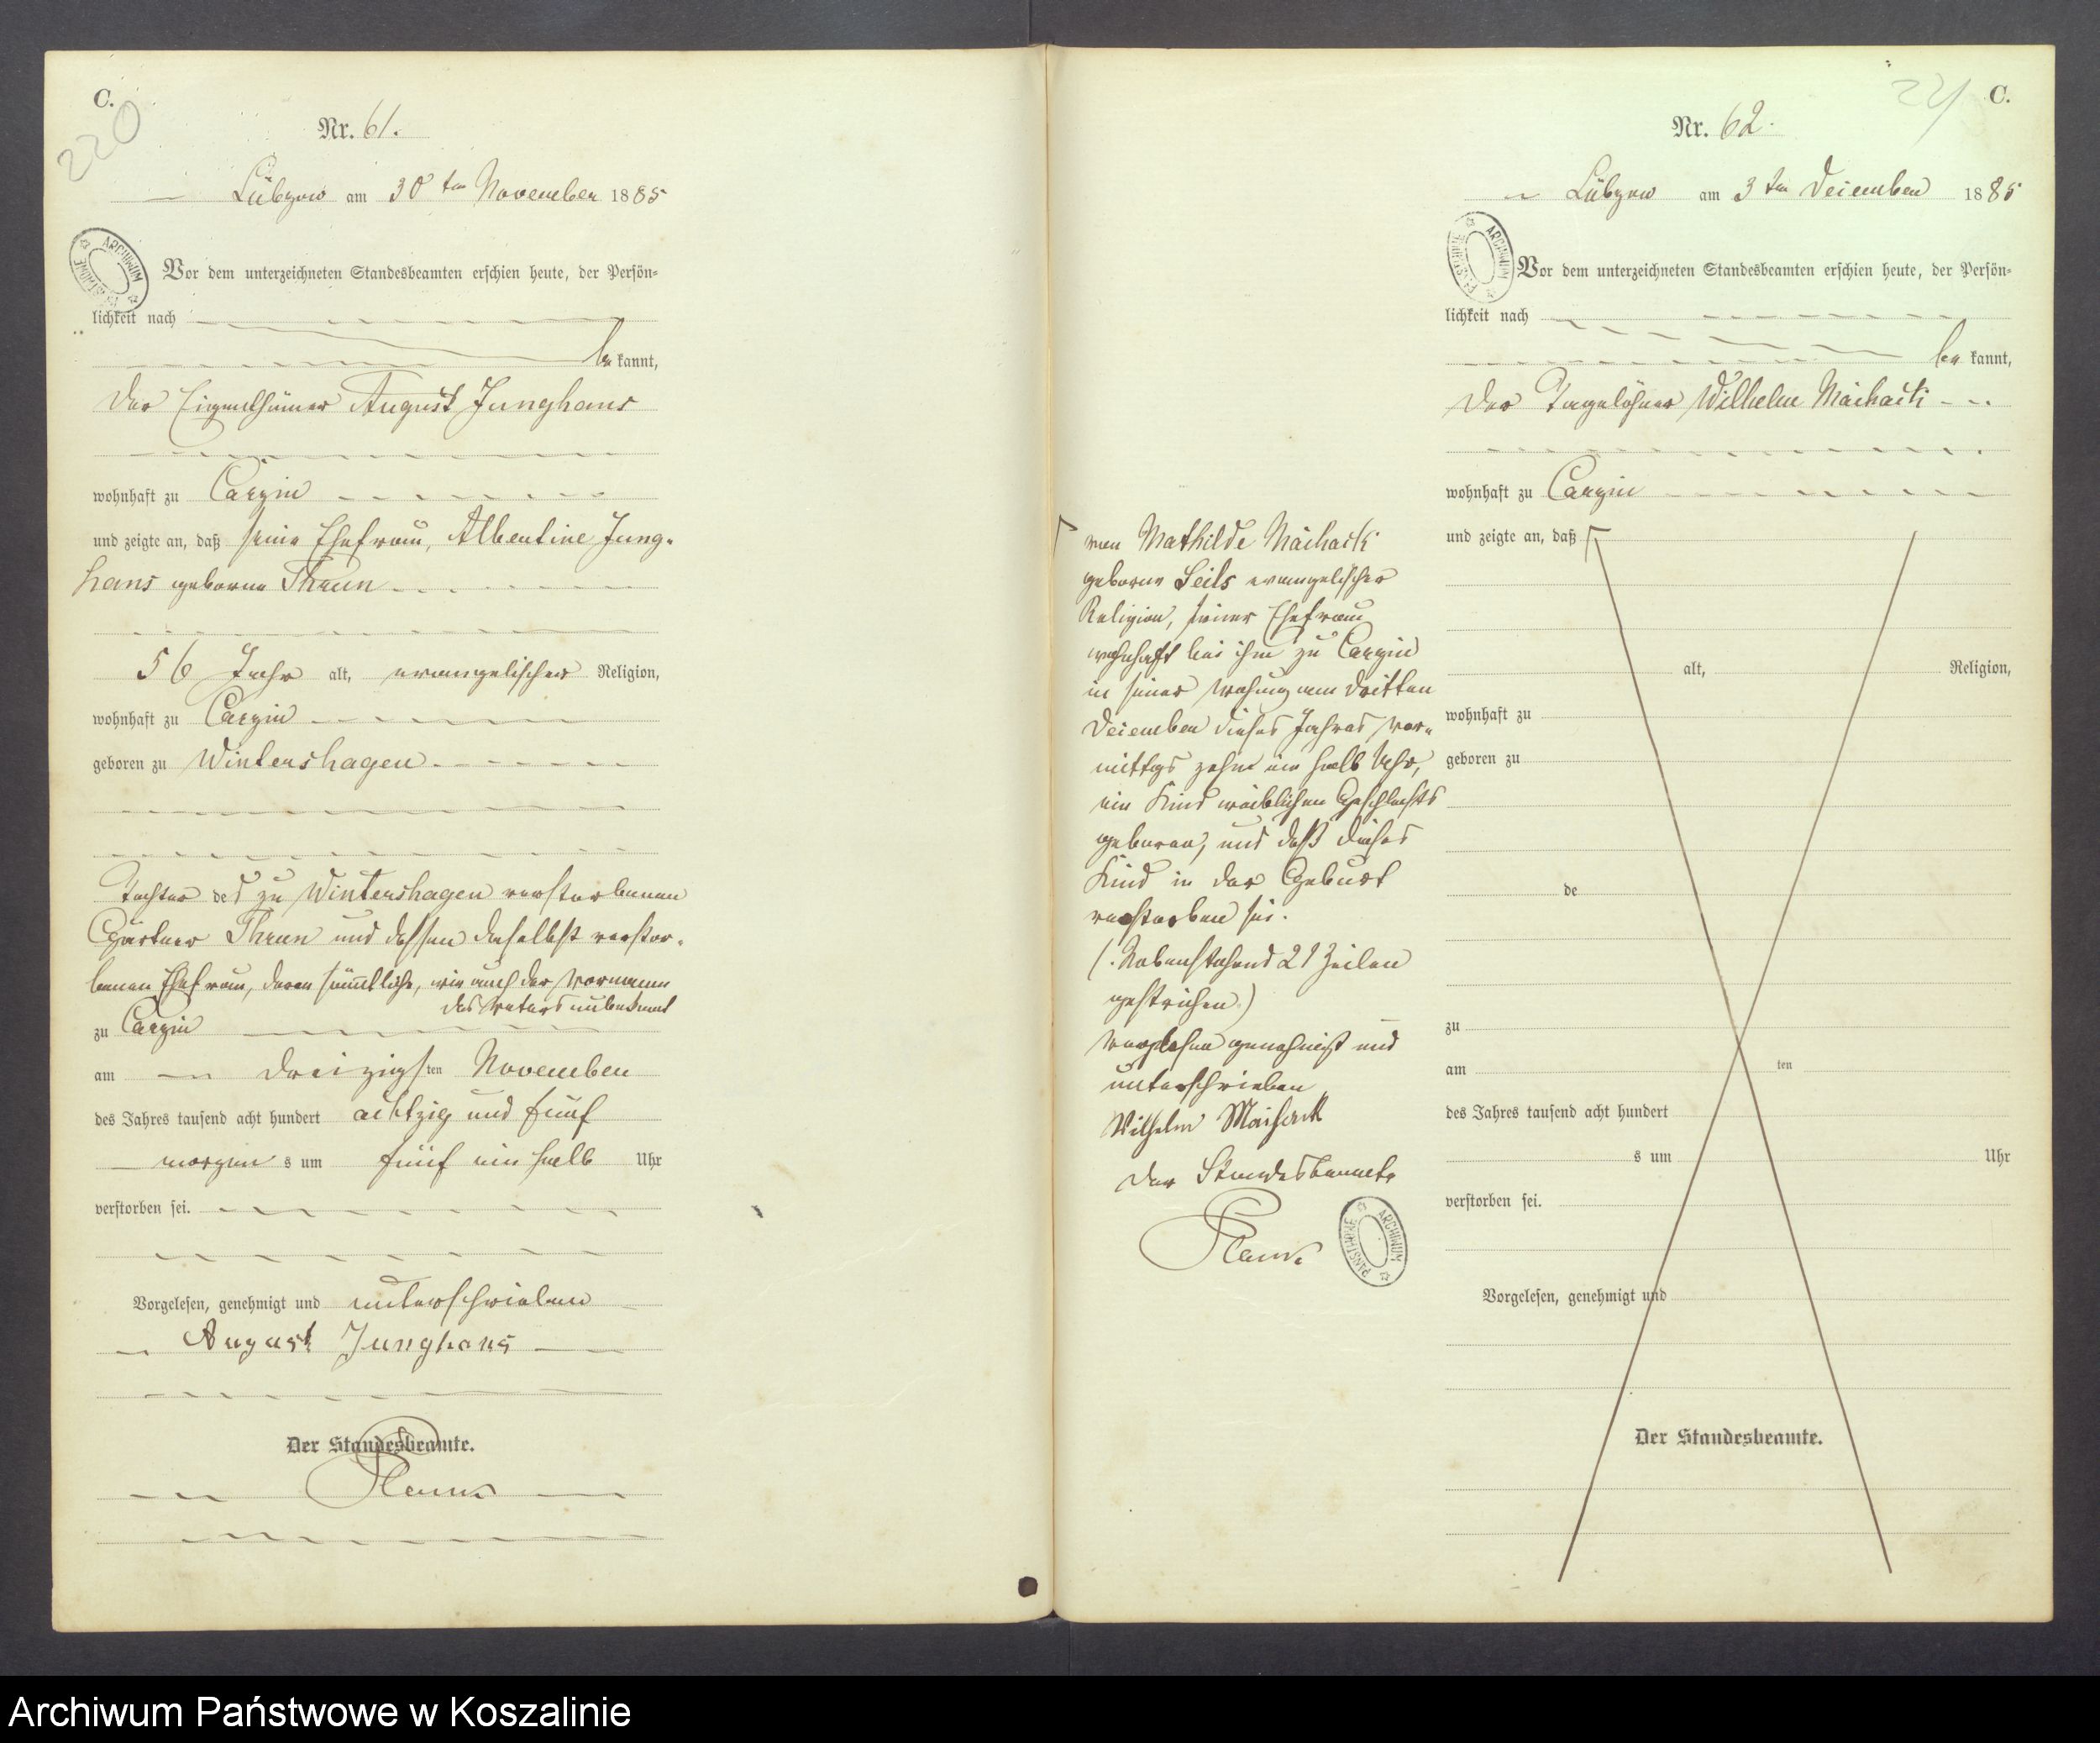 C.
220
Nr. 61.
Lübzow am 30ten November 1885
Vor dem unterzeichneten Standesbeamten erschien heute, der Persön-
lichkeit nach
be kannt,
der Eigenthümer August Junghans
wohnhaft zu Carzin
und zeigte an, daß seine Ehefrau, Albertine Jung-
hans geborne Thrun
56 Jahr alt, evangelischer Religion,
wohnhaft zu Carzin
geboren zu Wintershagen
Tochter des zu Wintershagen verstorbenen
Gärtner Thrun und dessen daselbst verstor-
benen Ehefrau, deren sämmtliche, wie auch der Vorname
des Vaters unbekannt
zu Carzin
am dreizigsten November
des Jahres tausend acht hundert achtzig und fünf
morgens um fünf ein halb Uhr
verstorben sei.
Vorgelesen, genehmigt und unterschrieben
August Junghans
Der Standesbeamte.
ARCHIWUM PAŃSTWOWE
C.
Nr. 62.
Lübzow am 3ten Decemben 1885
Vor dem unterzeichneten Standesbeamten erschien heute, der Persön-
lichkeit nach
be kannt,
der Tagelöhner Wilhelm Maihack
wohnhaft zu Carzin
und zeigte an, daß
alt, Religion,
wohnhaft zu
geboren zu
de
zu
am ten
des Jahres tausend acht hundert
s um Uhr
verstorben sei.
Vorgelesen, genehmigt und
Der Standesbeamte.
von Mathilde Maihack
geborne Seils evangelischer
Religion, seiner Ehefrau
wohnhaft bei ihm zu Carzin
in seiner Wohnung am dritten
December dieses Jahres vor-
mittags zehn ein halb Uhr,
ein Kind weiblichen Geschlechts
geboren, und daß dieses
Kind in der Geburt
verstorben sei.
(Nebenstehend 21 Zeilen
gestrichen.)
Vorgelesen genehmigt und
unterschrieben
Wilhelm Maihack
Der Standesbeamte
ARCHIWUM PAŃSTWOWE
Archiwum Państwowe w Koszalinie